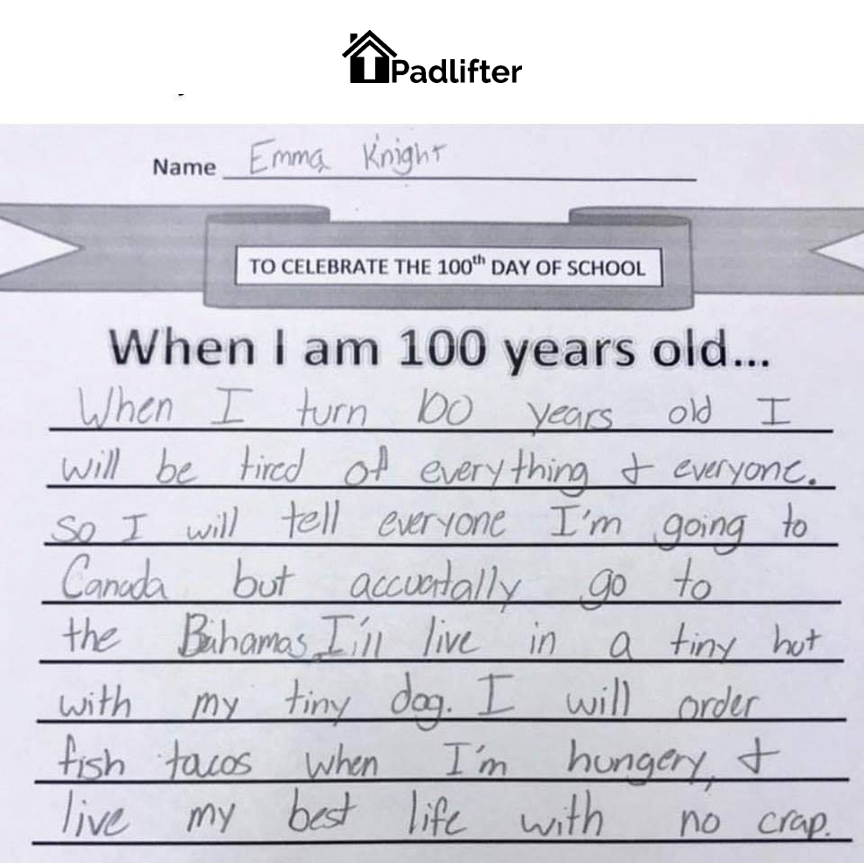 Padlifter
Name Emma Knight
TO CELEBRATE THE 100th DAY OF SCHOOL
When I am 100 years old...
When I turn 100 years old I
will be tired of everything & everyone.
so I will tell everyone I'm going to
Canada but accuatally go to
the Bahamas I'll live in a tiny hut
with my tiny dog. I will order
fish tacos when I'm hungery, &
live my best life with no crap.